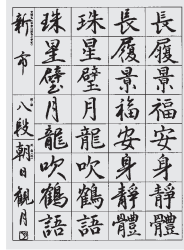 長履景福安身靜體
長履景福安身靜體
珠星璧月龍吹鶴語
珠星璧月龍吹鶴語
新市 八段 朝日観月